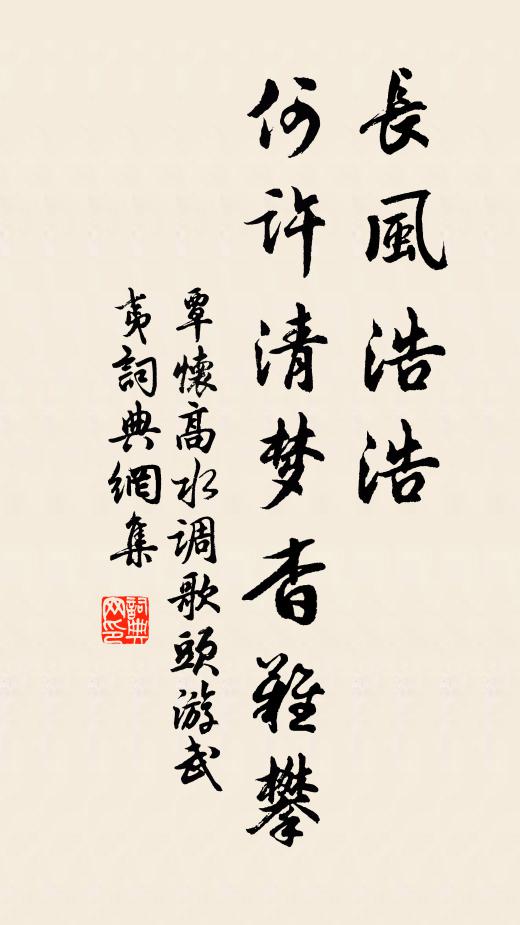 長風浩浩
何许清梦杳難攀
覃懷高水调歌頭游武
夷詞典網集
詞典
网印